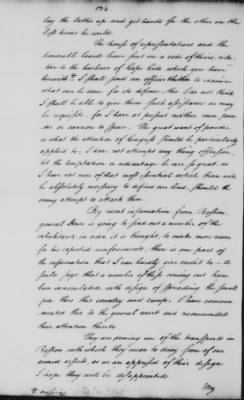 134
lay the latter up and get hands for the other on the
best terms he could.
The house of representatives and the
honorable board have sent me a vote of theirs, rela-
tive to the harbour of Cape Cod which you have
herewith. I shall send an officer thither to examine
what can be done for its defence, tho I do not think
I shall be able to give them such assistance as may
be requisite, for I have at present neither men, pow-
der or cannon to spare. The great want of powder
is what the attention of Congress should be particularly
applied to; I dare not attempt any thing offensive,
let the temptation or advantage be ever so great as
I have not more of that most essential article than will
be absolutely necessary to defend our lines, should the
enemy attempt to attack them.
By recent information from Boston,
general Howe is going to send out a number of the
inhabitants in order, it is thought, to make more room
for his expected reinforcements, there is one part of
the information that I can hardly give credit to – A
sentry says that a number of these coming out have
been inoculated, with design of spreading the small
pox thro this country and camp. I have commu-
nicated this to the general court and recommended
their attention thereto.
They are arming one of the transports in
Boston with which they mean to decoy some of our
armed vessels, as we are apprised of their design
I hope they will be disappointed.
My